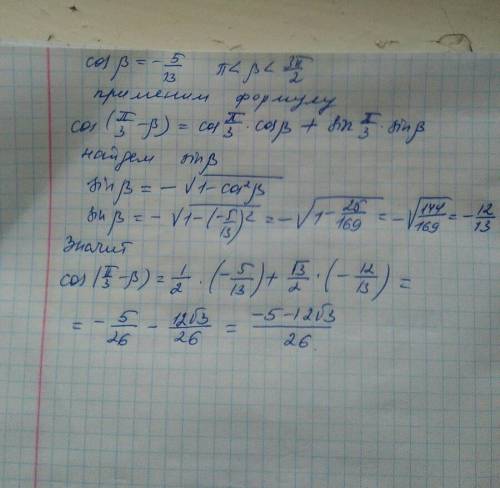 cos β = -5/13   π < β < 3π/2
применим формулу
cos(π/3 - β) = cos π/3 · cosβ + sin π/3 · sinβ
найдем sinβ
sinβ = -√(1 - cos²β)
sinβ = -√(1 - (-5/13)²) = -√(1 - 25/169) = -√(144/169) = -12/13
Значит
cos(π/3 - β) = 1/2 · (-5/13) + √3/2 · (-12/13) =
= -5/26 - 12√3/26 = (-5 - 12√3)/26